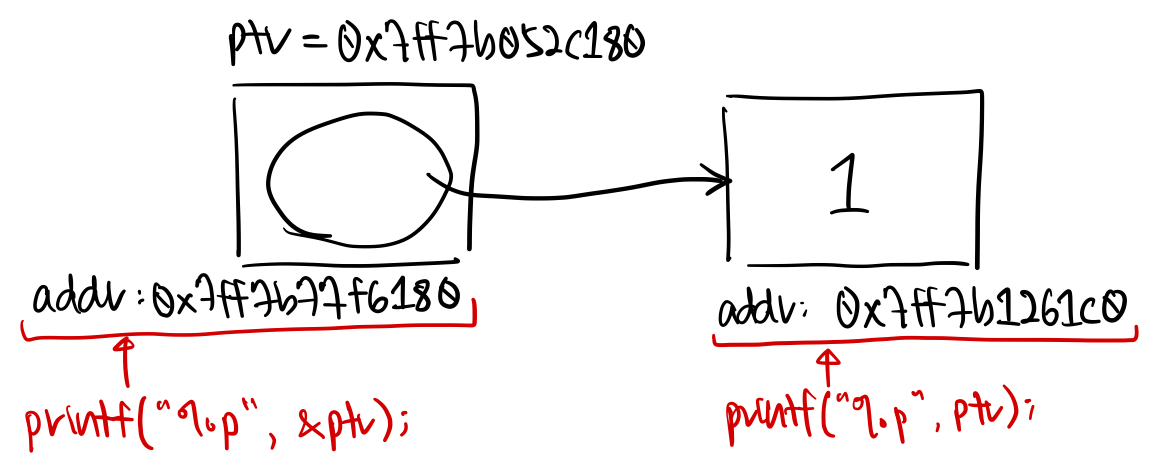 ptr = 0x7ff7b052c180
1
addr: 0x7ff7b77f6180
addr: 0x7ff7b1261c0
printf("%p", &ptr);
printf("%p", ptr);